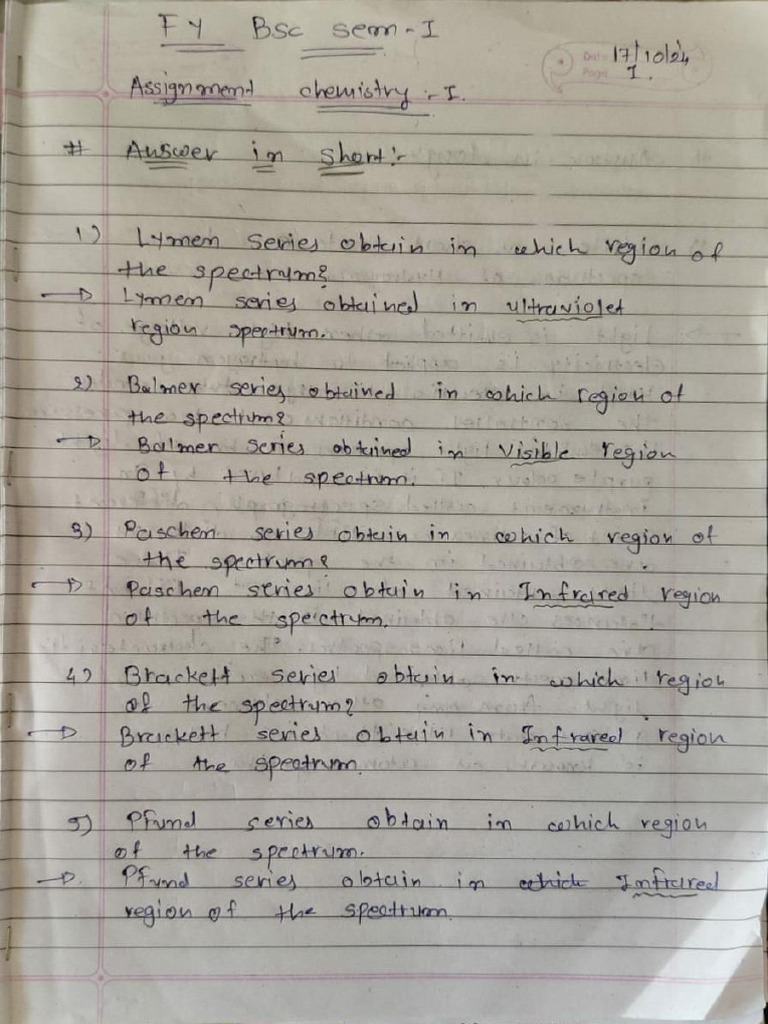 FY Bsc sem-I
Date 17/10/24
Page 1.
Assignment chemistry-I.
# Answer in short:-
1) Lymen series obtain in which region of
the spectrum?
→ Lymen series obtained in ultraviolet
region spectrum.
2) Balmer series obtained in which region of
the spectrum?
→ Balmer series obtained in Visible region
of the spectrum.
3) Paschen series obtain in which region of
the spectrum?
→ Paschen series obtain in Infrared region
of the spectrum.
4) Brackett series obtain in which region
of the spectrum?
→ Brackett series obtain in Infrared region
of the spectrum.
5) Pfund series obtain in which region
of the spectrum.
→ Pfund series obtain in which Infrared
region of the spectrum.